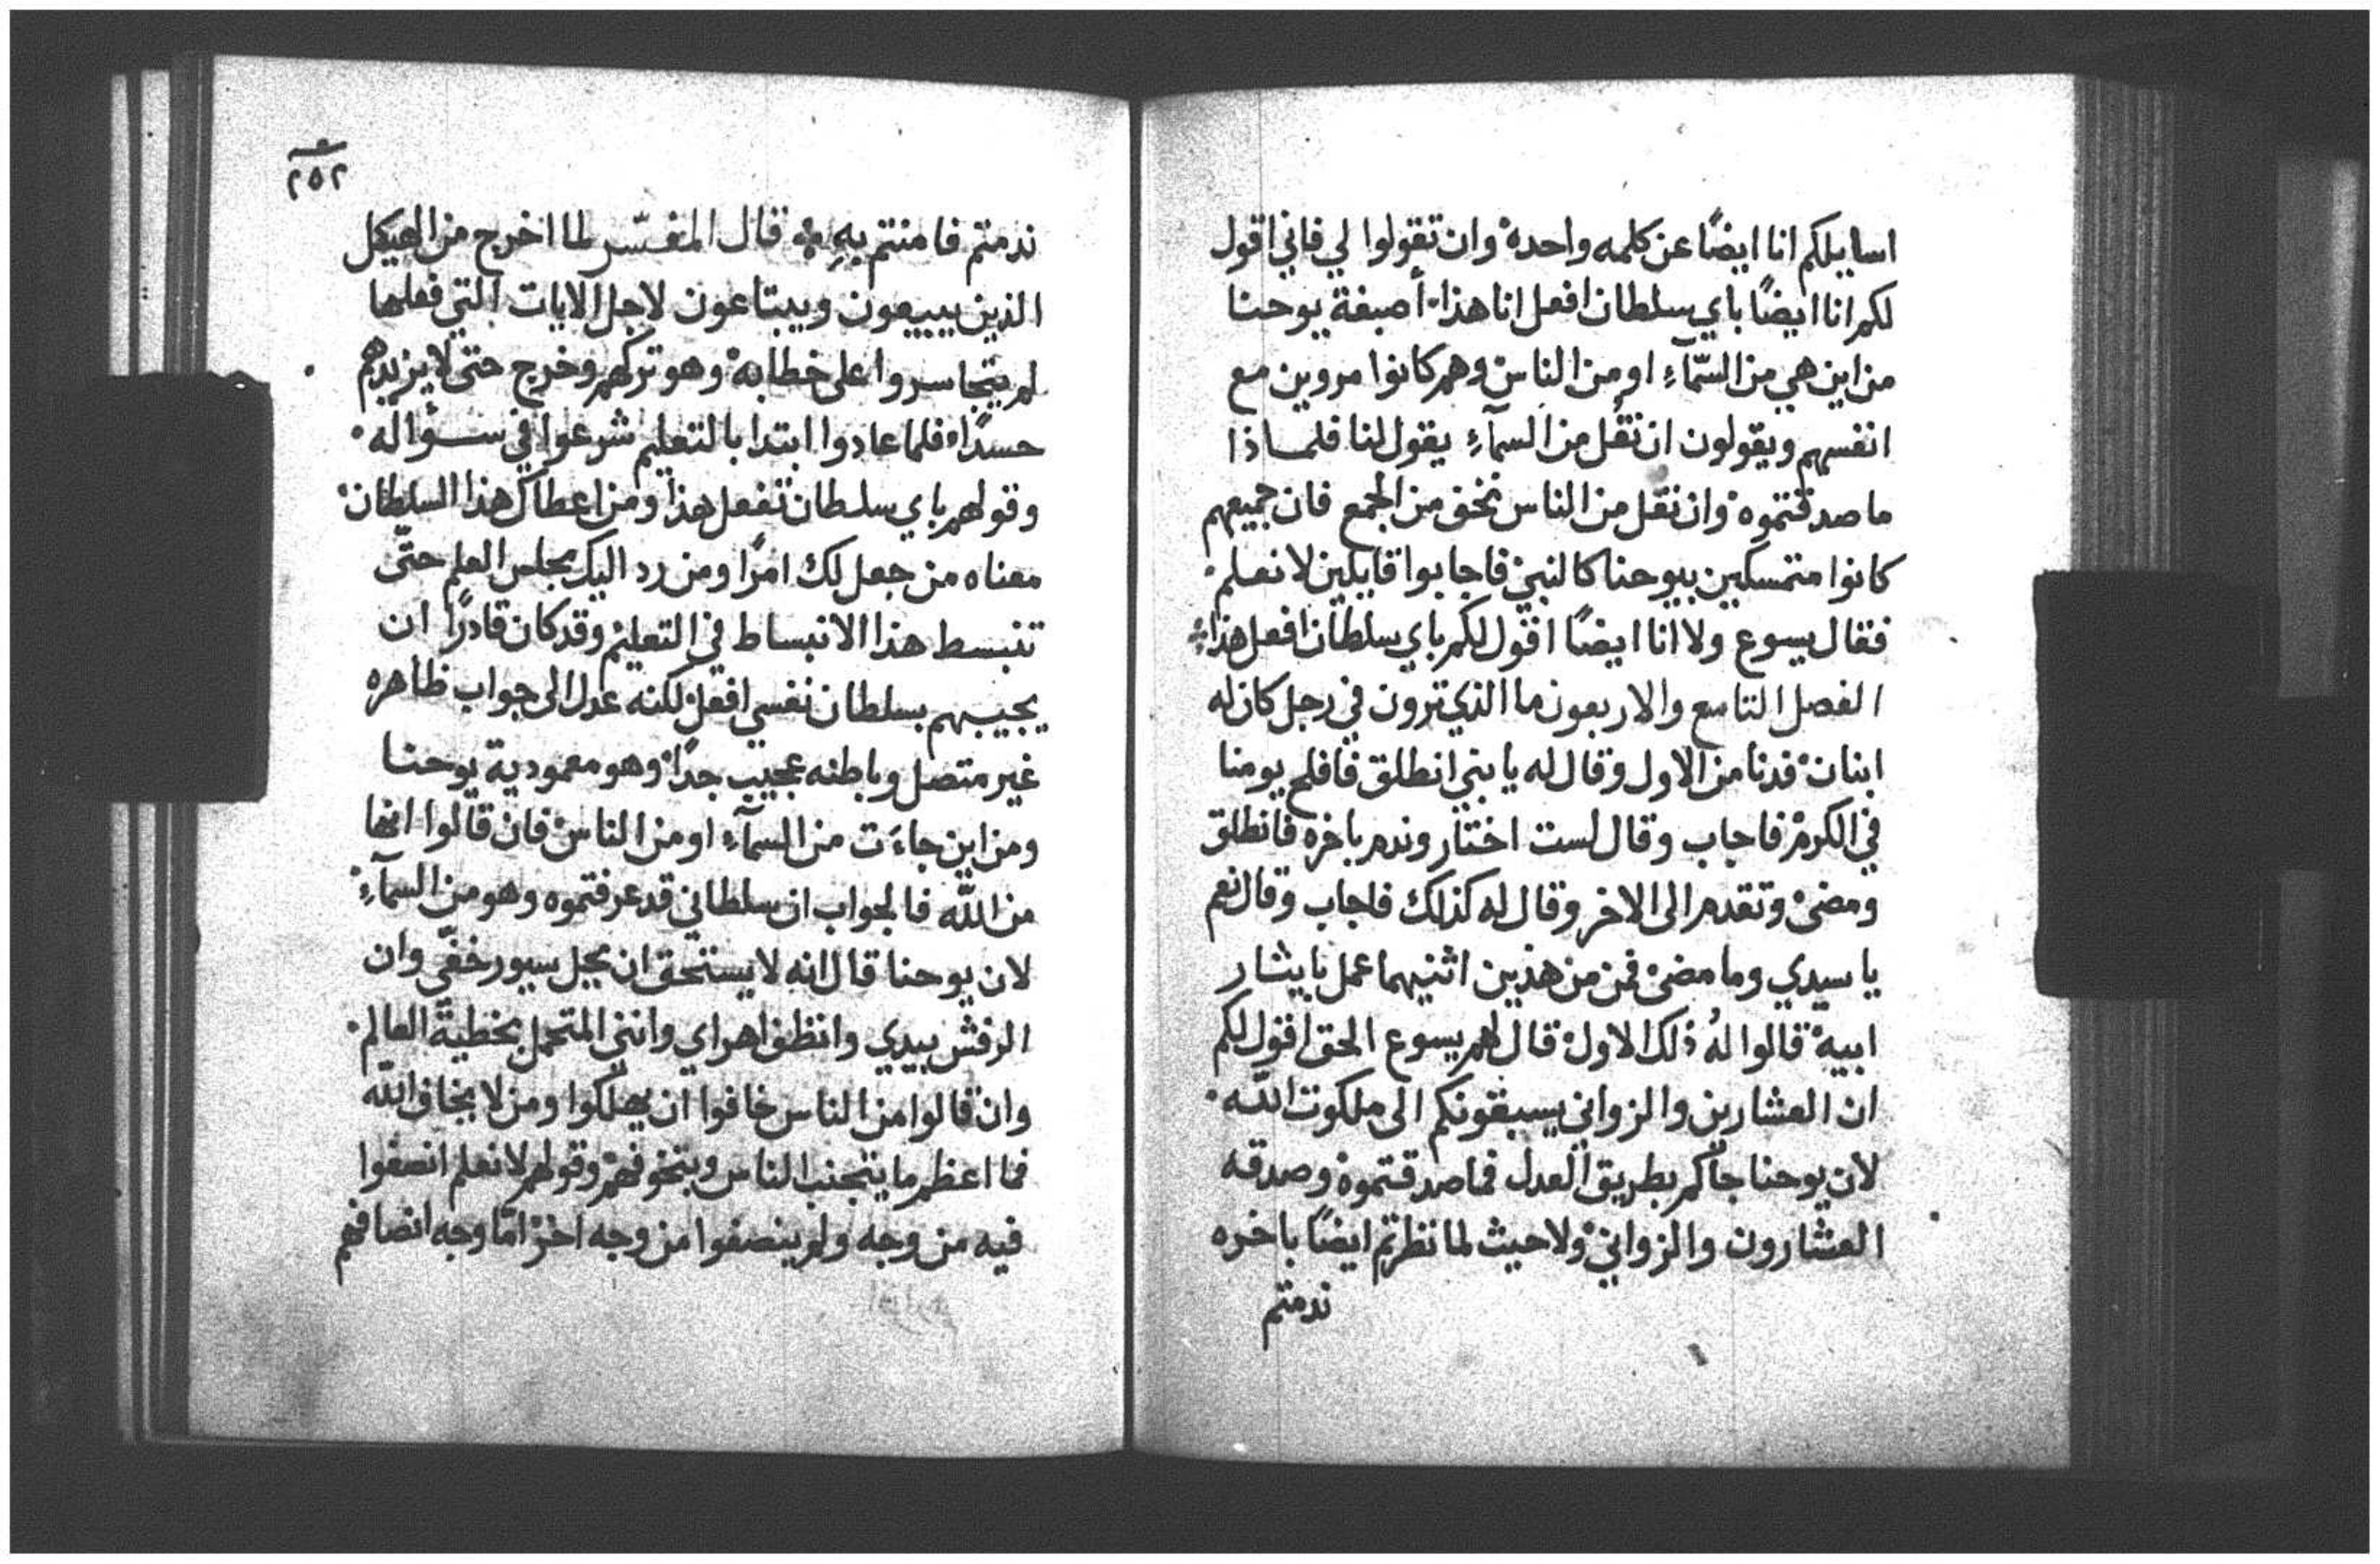 اسايلكم انا ايضًا عن كلمه واحدة وان تقولوا لي فاني اقول
لكم انا ايضًا باي سلطان افعل انا هذا أصبغة يوحنا
من اين هي من السّمآءِ او من الناس وهم كانوا مروين مع
انفسهم ويقولون ان نقُل من السمآءِ يقول لنا فلماذا
ما صدقتموه وان نقل من الناس نخف من الجمع فان جميعهم
كانوا متمسكين بيوحنا كالنبي فاجابوا قايلين لا نعلم
فقال يسوع ولا انا ايضًا اقول لكم باي سلطان افعل هذا
الفصل التاسع والاربعون ما الذي ترون في رجل كان له
ابنان فدنا من الاول وقال له يا بني انطلق فافلح يومنا
في الكرم فاجاب وقال لست اختار وندم باخره فانطلق
ومضى وتقدم الى الاخر وقال له كذلك فاجاب وقال نعم
يا سيدي وما مضى فمن من هذين اثنيهما عمل بايثار
ابيه قالوا لهُ ذلك الاول قال لهم يسوع الحق اقول لكم
ان العشارين والزواني يسبقونكم الى ملكوت اللّه
لان يوحنا جآكم بطريق العدل فما صدقتموه وصدقه
العشارون والزواني ولا حيث لما نظرتم ايضًا باخره
ندمتم
٢٥٢
ندمتم فامنتم بهِ قال المفسّر لما اخرج من الهيكل
الذين يبيعون ويبتاعون لاجل الايات التي فعلها
لم يتجاسروا على خطابه وهو تركهم وخرج حتى لا يزيدهم
حسدًا فلما عادوا ابتدا بالتعليم شرعوا في سؤاله
وقولهم باي سلطان تفعل هذا ومن اعطاك هذا السلطان
معناه من جعل لك امرًا ومن رد اليك مجلس العلم حتّى
تنبسط هذا الانبساط في التعليم وقد كان قادرًا ان
يجيبهم بسلطان نفسي افعل لكنه عدل الى جواب ظاهره
غير متصل وباطنه عجيب جدًا وهو معمودية يوحنا
ومن اين جاءَت من السمآءِ او من الناس فان قالوا انها
من اللّه فالجواب ان سلطاني قد عرفتموه وهو من السمآءِ
لان يوحنا قال انه لا يستحق ان يحل سيور خفّي وان
الرفش بيدي وانظف اهراي وانني المتحمل بخطية العالم
وان قالوا من الناس خافوا ان يهلكوا ومن لا يخاف اللّه
فما اعظم ما يتجنب الناس ويتخوفهم وقولهم لا نعلم انصفوا
فيه من وجه ولم ينصفوا من وجه اخر امّا وجه انصافهم